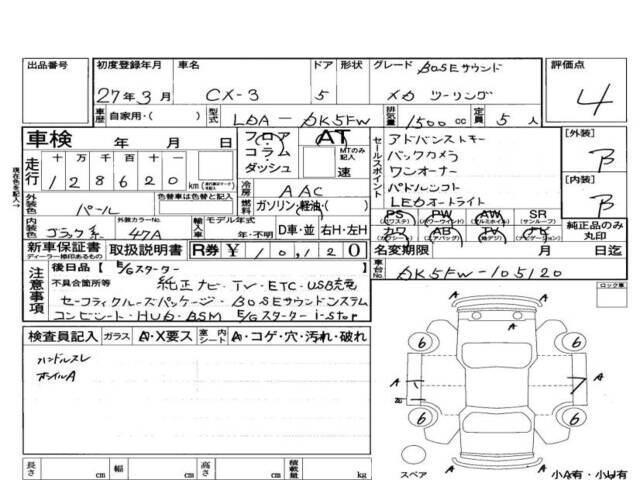 出品番号 初度登録年月 車名 ドア 形状 グレード BOSEサウンド 評価点
27年3月 CX-3 5 XD ツーリング 4
車歴 自家用・( ) 型式 LDA-DK5FW 排気量 1500cc 定員 5人
車検 年 月 日 フロア AT セールスポイント アドバンストキー [外装]
コラム・ MTのみ記入 バックカメラ B
走行 十万千百十 ダッシュ 速 ワンオーナー
128620 km 冷房 AAC パドルシフト [内装]
外装色 パール 色替車は色替と記入 燃料 ガソリン・軽油・( ) LEDオートライト B
PS PW AW SR
(パワステ) (パワーウインド) (アルミホイル) (サンルーフ)
内装色 ブラック系 外装カラーNo. 47A 輸入車 モデル年式 年・不明 D車・並 右H・左H カワ AB TV ナビ 純正品のみ丸印
(カワシート) (エアバッグ) (地デジ)
新車保証書 取扱説明書 R券 ¥10,120 名変期限 月 日迄
ディーラー捺印あるもの
現在色を記入→
注意事項 後日品 [E/Gスターター] 車台No. DK5FW-105120
不具合箇所など 純正ナビ・TV・ETC・USB充電 ロック車
セーフティクルーズパッケージ・BOSEサウンドシステム
コンビシート・HUD・BSM E/Gスターター i-stop
検査員記入 ガラス A・X要ス 室内シート A・コゲ・穴・汚れ・破れ
ハンドルスレ
ホイルA
A
6 6
A A
6 6
スペア
A
長さ cm 幅 cm 高さ cm 積載量 kg 小A有・小U有